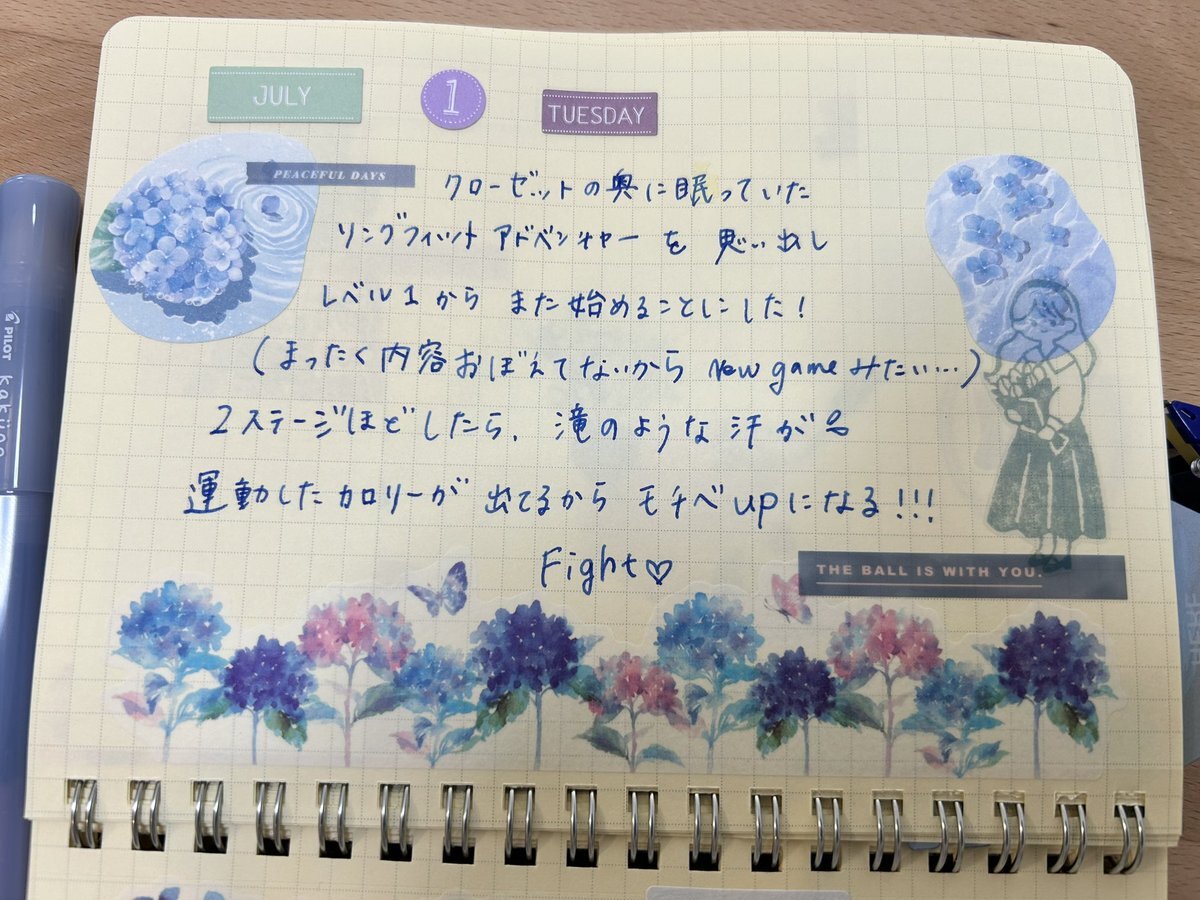 JULY
1
TUESDAY
PEACEFUL DAYS
クローゼットの奥に眠っていた
リングフィット アドベンチャー を 思い出し
レベル1から また始めることにした!
(まったく内容おぼえてないから New gameみたい…)
2ステージほどしたら、滝のような汗が
運動したカロリーが 出てるから モチベupになる!!!
Fight♡
THE BALL IS WITH YOU.
PILOT
kaküno